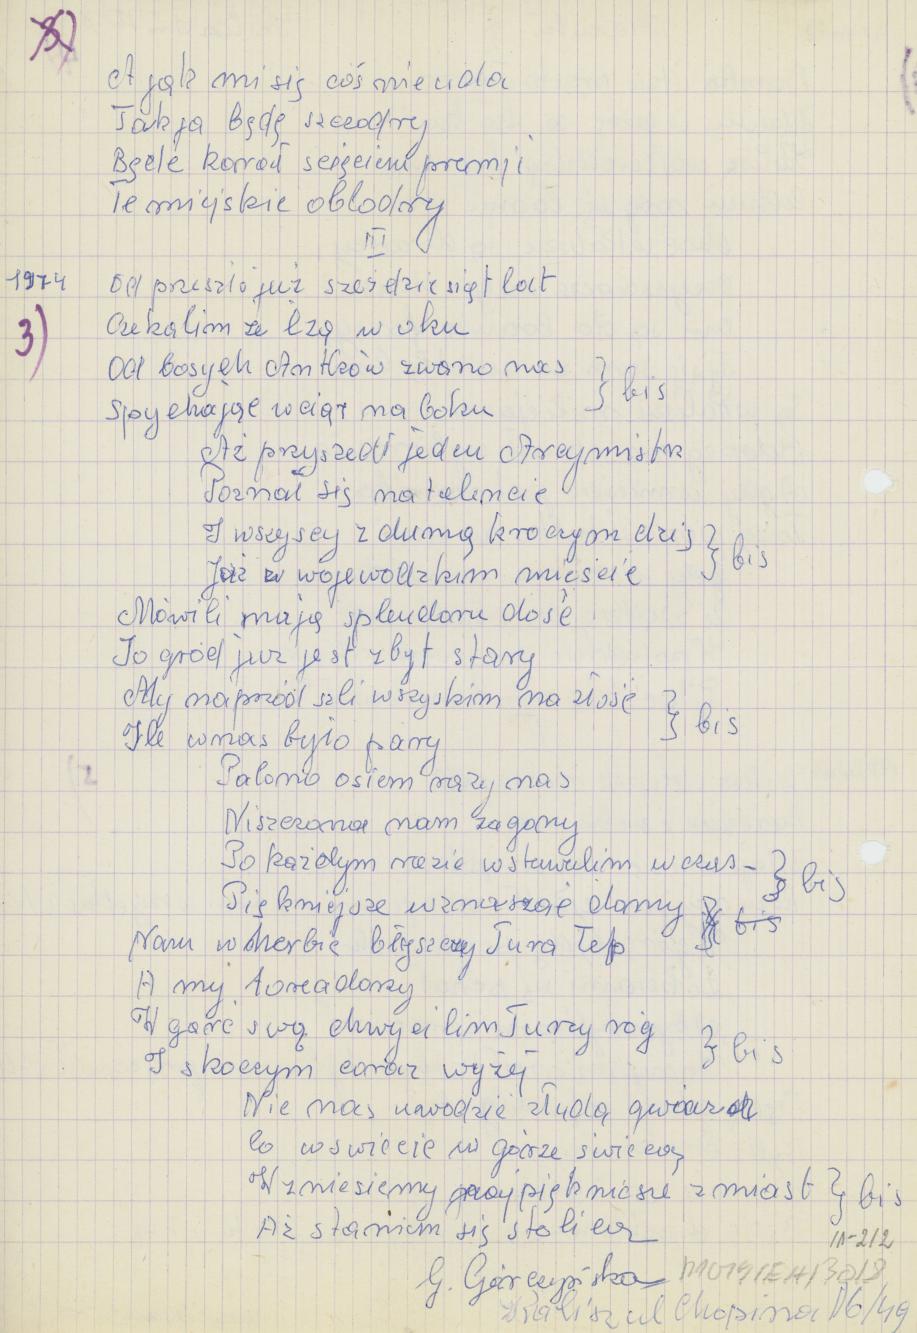 8)
A jak mi się coś nie uda
Tak ja będę szczodry
Będe karał ścięciem premji
Te miejskie obłodry
III
1974 Od przeszło już sześdziesiąt lat
3) Czekalim ze łzą w oku
Od bosych Antków zwano nas
Spychając wciąż na boku } bis
Aż przyszedł jeden Arcymistrz
Poznał się na talencie
I wszyscy z dumą kroczym dziś
Już w wojewódzkim mieście } bis
Mówili mają splendoru dość
To gród już jest zbyt stary
My naprzód szli wszyskim na złość
Ile w nas było pary } bis
Palono osiem razy nas
Niszczono nam zagony
Po każdym razie wstawalim wczas -
Piękniejsze wznosząc domy } bis
bis
Nam w herbie błyszczy Tura łep
A my toreadorzy
W garć swą chwycilim Turzy róg
I skoczym coraz wyżej } bis
Nie nas uwodzić złudą gwiazd
Co w świecie w górze świecą
Wzniesiemy najpiękniesze z miast
Aż staniem się stolicą } bis
III-212
G. Górczyńska
Kalisz ul Chopina 16/49